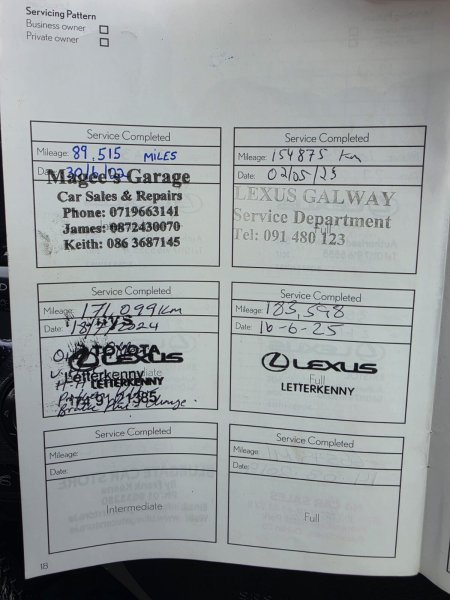 Servicing Pattern
Business owner
Private owner
Service Completed
Mileage: 89,515 MILES
Date:
Magee's Garage
Car Sales & Repairs
Phone: 0719663141
James: 0872430070
Keith: 086 3687145
Service Completed
Mileage: 154875 Km
Date: 02/05/23
LEXUS GALWAY
Service Department
Full
Tel: 091 480 123
Service Completed
Mileage: 171,099 Km
Date:
TOYOTA
LEXUS
Letterkenny
LETTERKENNY
Intermediate
74 91 21385
Service Completed
Mileage: 183,548
Date: 16-6-25
LEXUS
Full
LETTERKENNY
Service Completed
Mileage:
Date:
Intermediate
Service Completed
Mileage:
Date:
Full
18